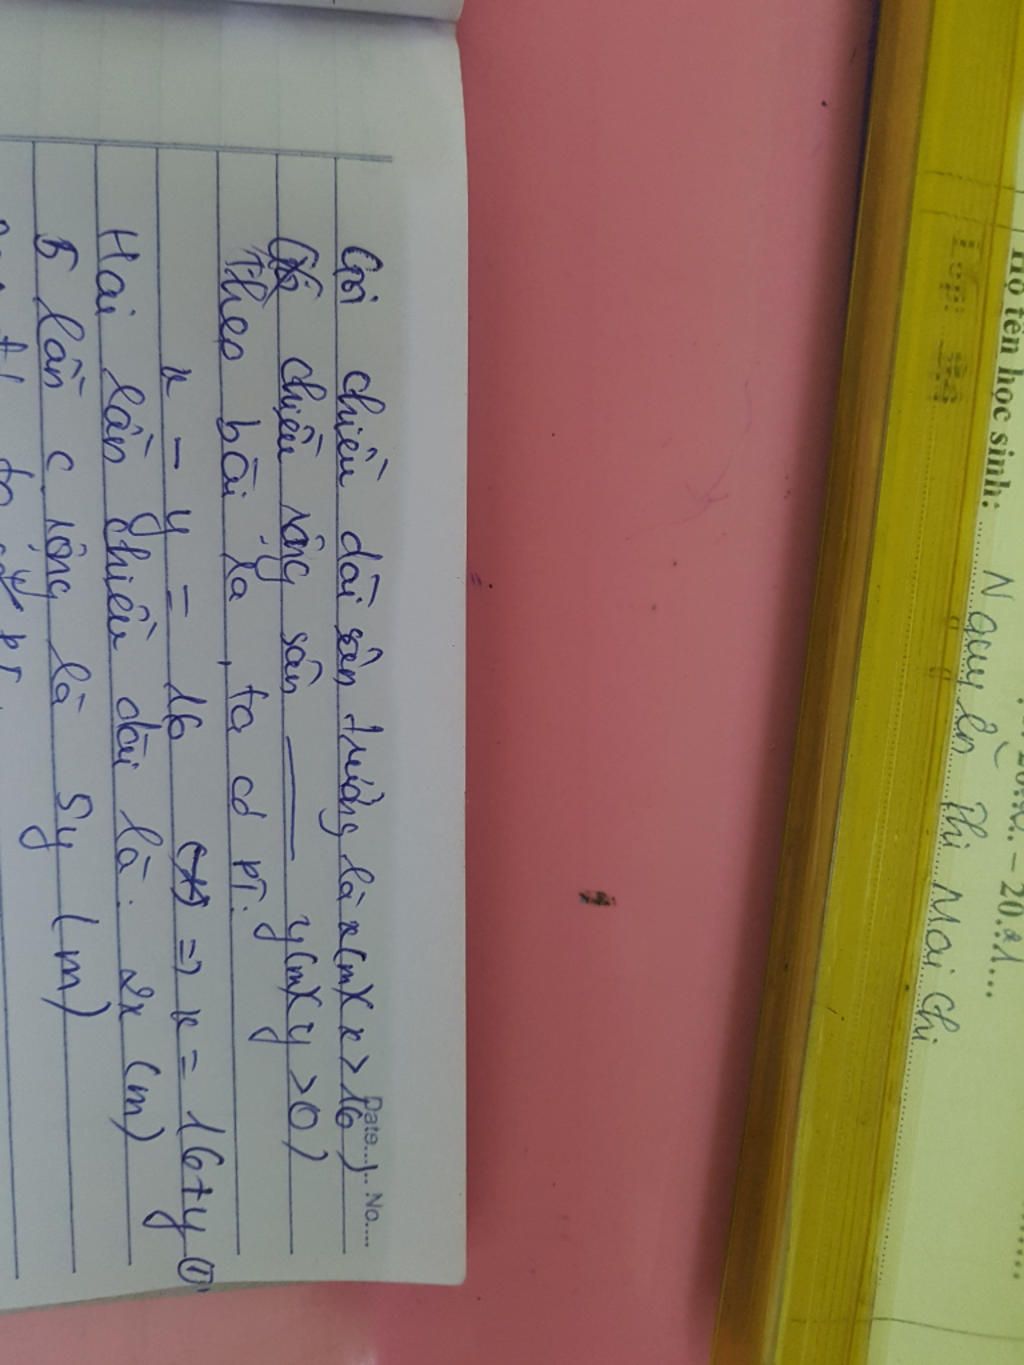 Họ tên học sinh: Nguyễn Thị Mai Chi
Lớp:
Date... No....
Gọi chiều dài sân trường là x(m)(x > 16)
chiều rộng sân ——— y(m)(y > 0)
Theo bài ra, ta có PT:
x - y = 16 => x = 16 + y ①
Hai lần chiều dài là: 2x (m)
5 lần c rộng là 5y (m)